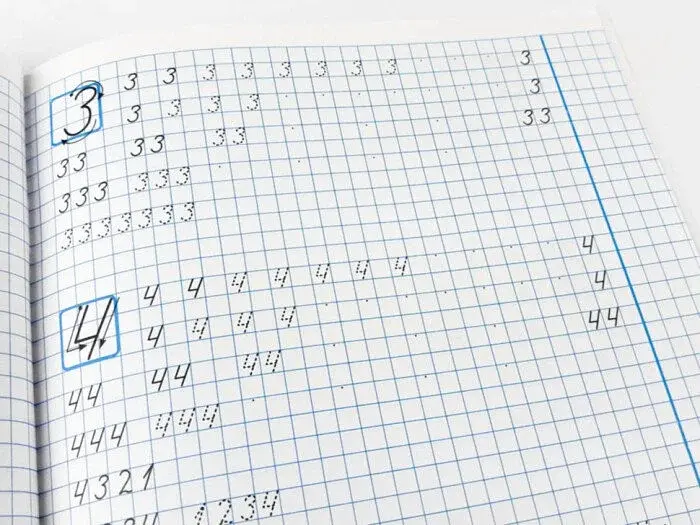 3 3 3 3 3 3 3 3 3 3
3 3 3 3 3
33 33 33 33
333 333
3333333
4 4 4 4 4 4 4 4 4
4 4 4 4 4
44 44 44 44
444 444
4321
1234